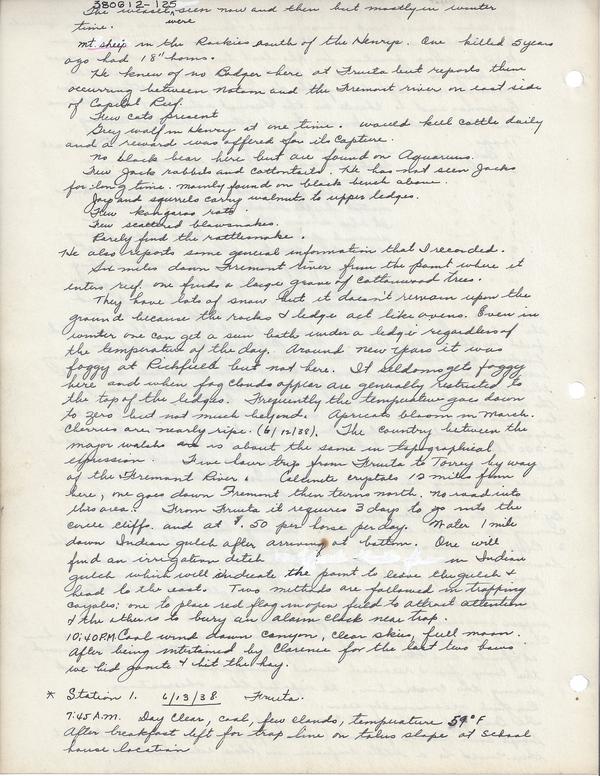 380612-125
The weasel, seen now and then but mostly in winter
time. were
Mt. sheep in the Rockies south of the Henrys. One killed 5 years
ago had 18" horns.
He knew of no Badger here at Fruita but reports them
occurring between Notom and the Fremont river on east side
of Capitol Reef.
Few cats present
Grey wolf in Henry at one time. would kill cattle daily
and a reward was offered for its capture.
No black bear here but are found on Aquarius.
Few Jack rabbits and cottontails. He has not seen Jacks
for long time. Mainly found on black bench above.
Jays and squirrels carry walnuts to upper ledges.
Few kangaroo rats.
Few scattered blowsnakes.
Rarely find the rattlesnake.
He also reports some general information that I recorded.
Six miles down Fremont river from the point where it
enters reef one finds a large grove of cottonwood trees.
They have lots of snow but it doesn't remain upon the
ground because the rocks & ledge act like ovens. Even in
winter one can get a sun bath under a ledge regardless of
the temperature of the day. Around new years it was
foggy at Richfield but not here. It seldoms gets foggy
here and when fog clouds appear are generally restricted to
the top of the ledges. Frequently the temperature goes down
to zero but not much beyond. Apricots bloom in March.
Cherries are nearly ripe. (6/12/38). The country between the
major washes is about the same in topographical
expression. Five hour trip from Fruita to Torrey by way
of the Fremont River. Selenite crystals 12 miles from
here, one goes down Fremont then turns north. No road into
this area. From Fruita it requires 3 days to go into the
circle cliffs. and at $.50 per horse per day. Water 1 mile
down Indian gulch after arriving at bottom. One will
find an irrigation ditch in Indian
gulch which will indicate the point to leave the gulch &
head to the east. Two methods are followed in trapping
coyotes; one to place red flag in open field to attract attention
& the other is to bury an alarm clock near trap.
10:40 P.M. Cool wind down canyon, clear skies, full moon.
After being entertained by Clarence for the last two hours
we bid gonite & hit the hay.
* Station 1. 6/13/38 Fruita.
7:45 A.M. Day clear, cool, few clouds, temperature 59°F
After breakfast left for trap line on talus slope at school
house location